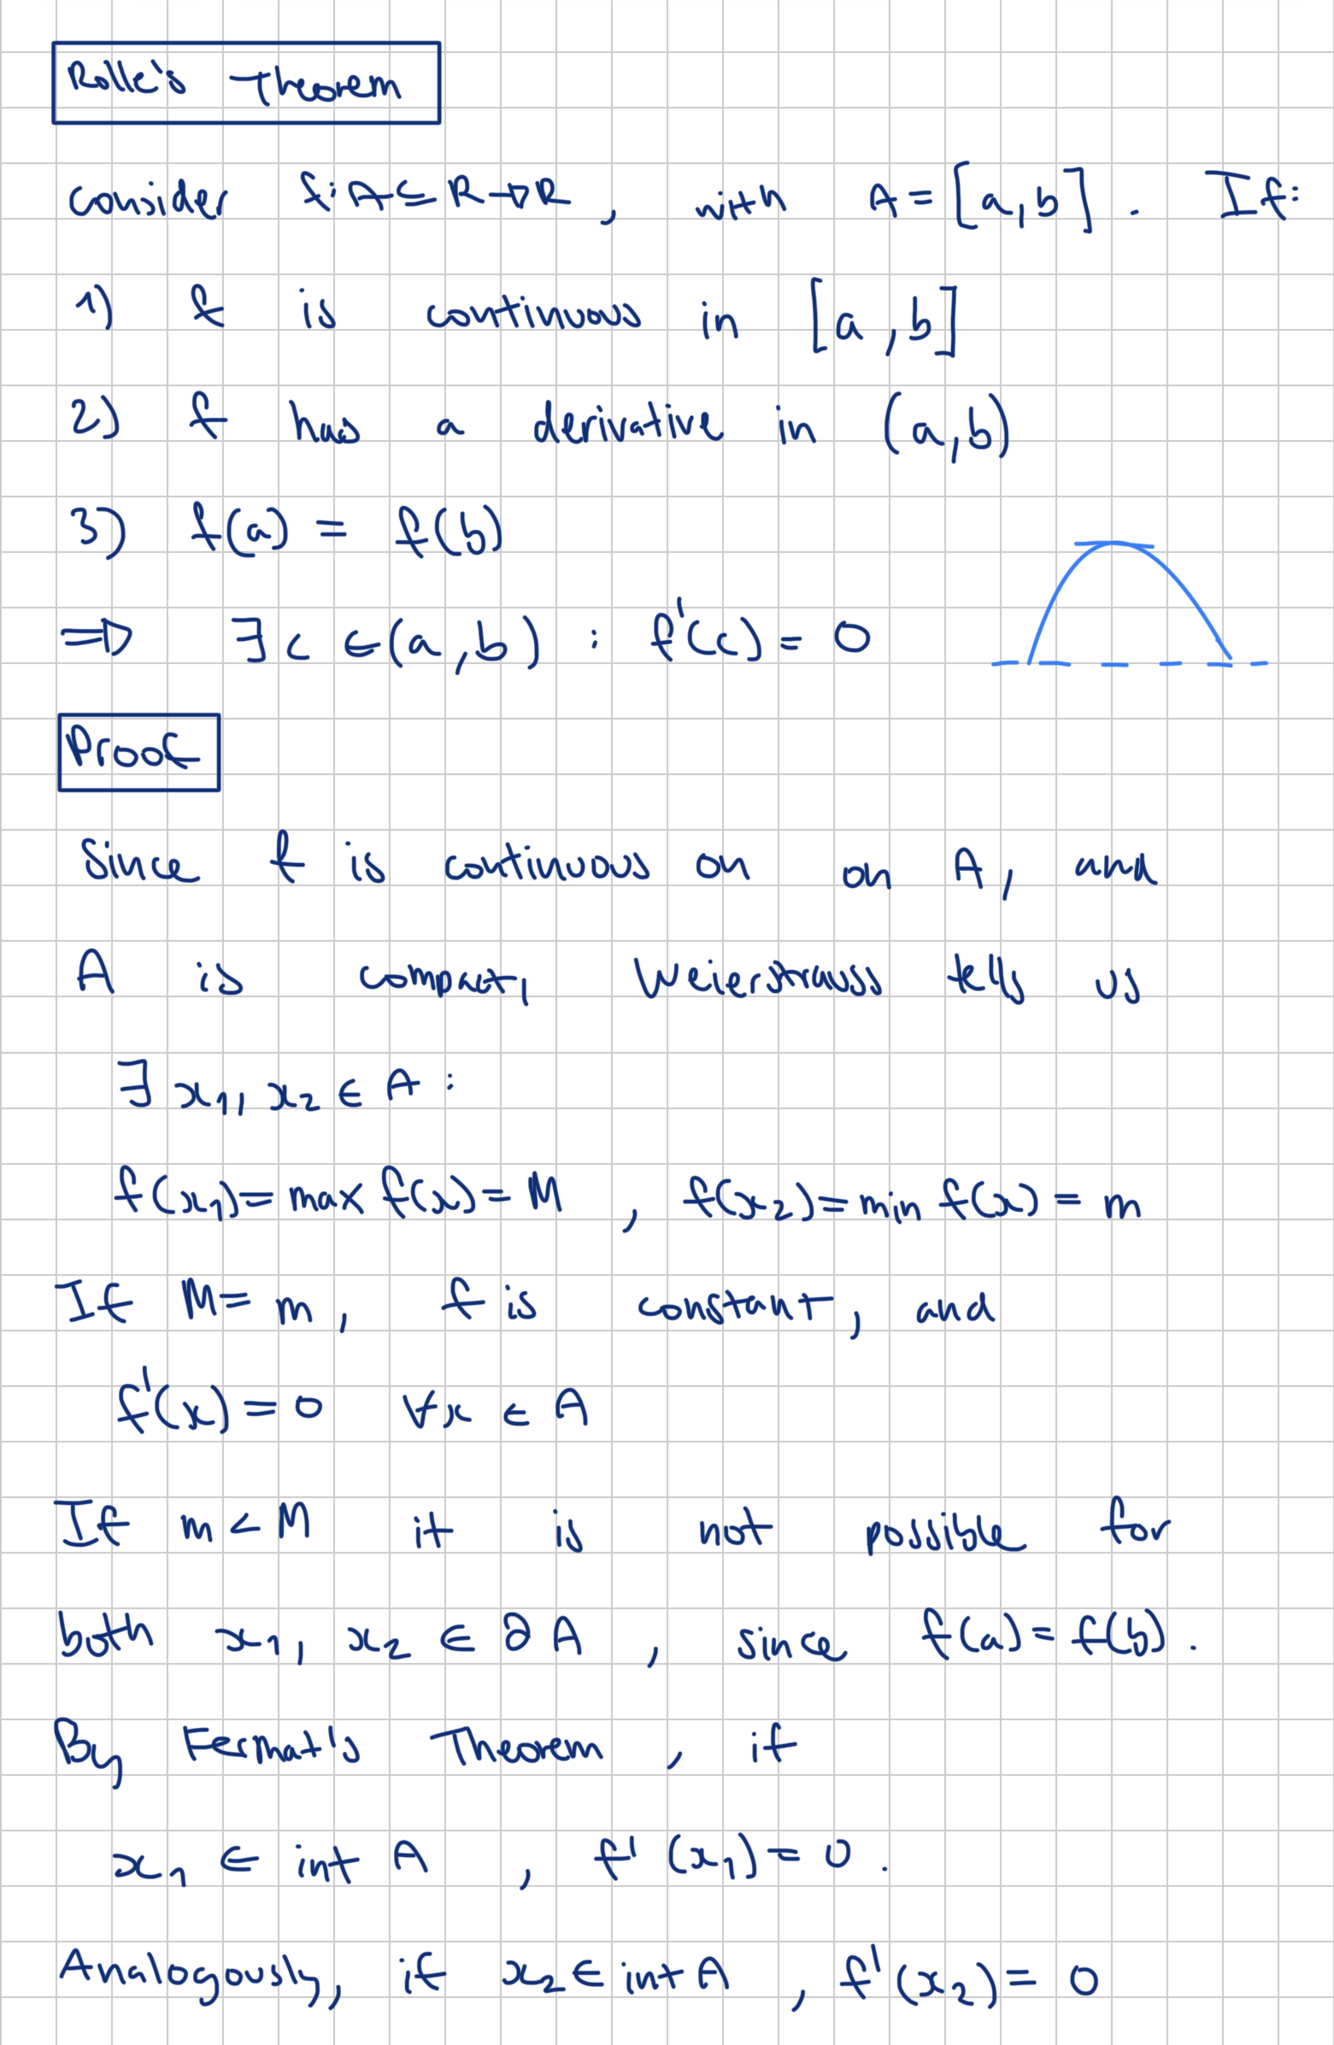 Rolle's Theorem
consider f: A ⊆ R → R , with A = [a,b] . If:
1) f is continuous in [a,b]
2) f has a derivative in (a,b)
3) f(a) = f(b)
⇒ ∃ c ∈ (a,b) : f'(c) = 0
Proof
Since f is continuous on on A, and
A is compact, Weierstrauss tells us
∃ x₁, x₂ ∈ A :
f(x₁) = max f(x) = M , f(x₂) = min f(x) = m
If M = m, f is constant, and
f'(x) = 0 ∀x ∈ A
If m < M it is not possible for
both x₁, x₂ ∈ ∂A , since f(a) = f(b).
By Fermat's Theorem , if
x₁ ∈ int A , f'(x₁) = 0.
Analogously, if x₂ ∈ int A , f'(x₂) = 0